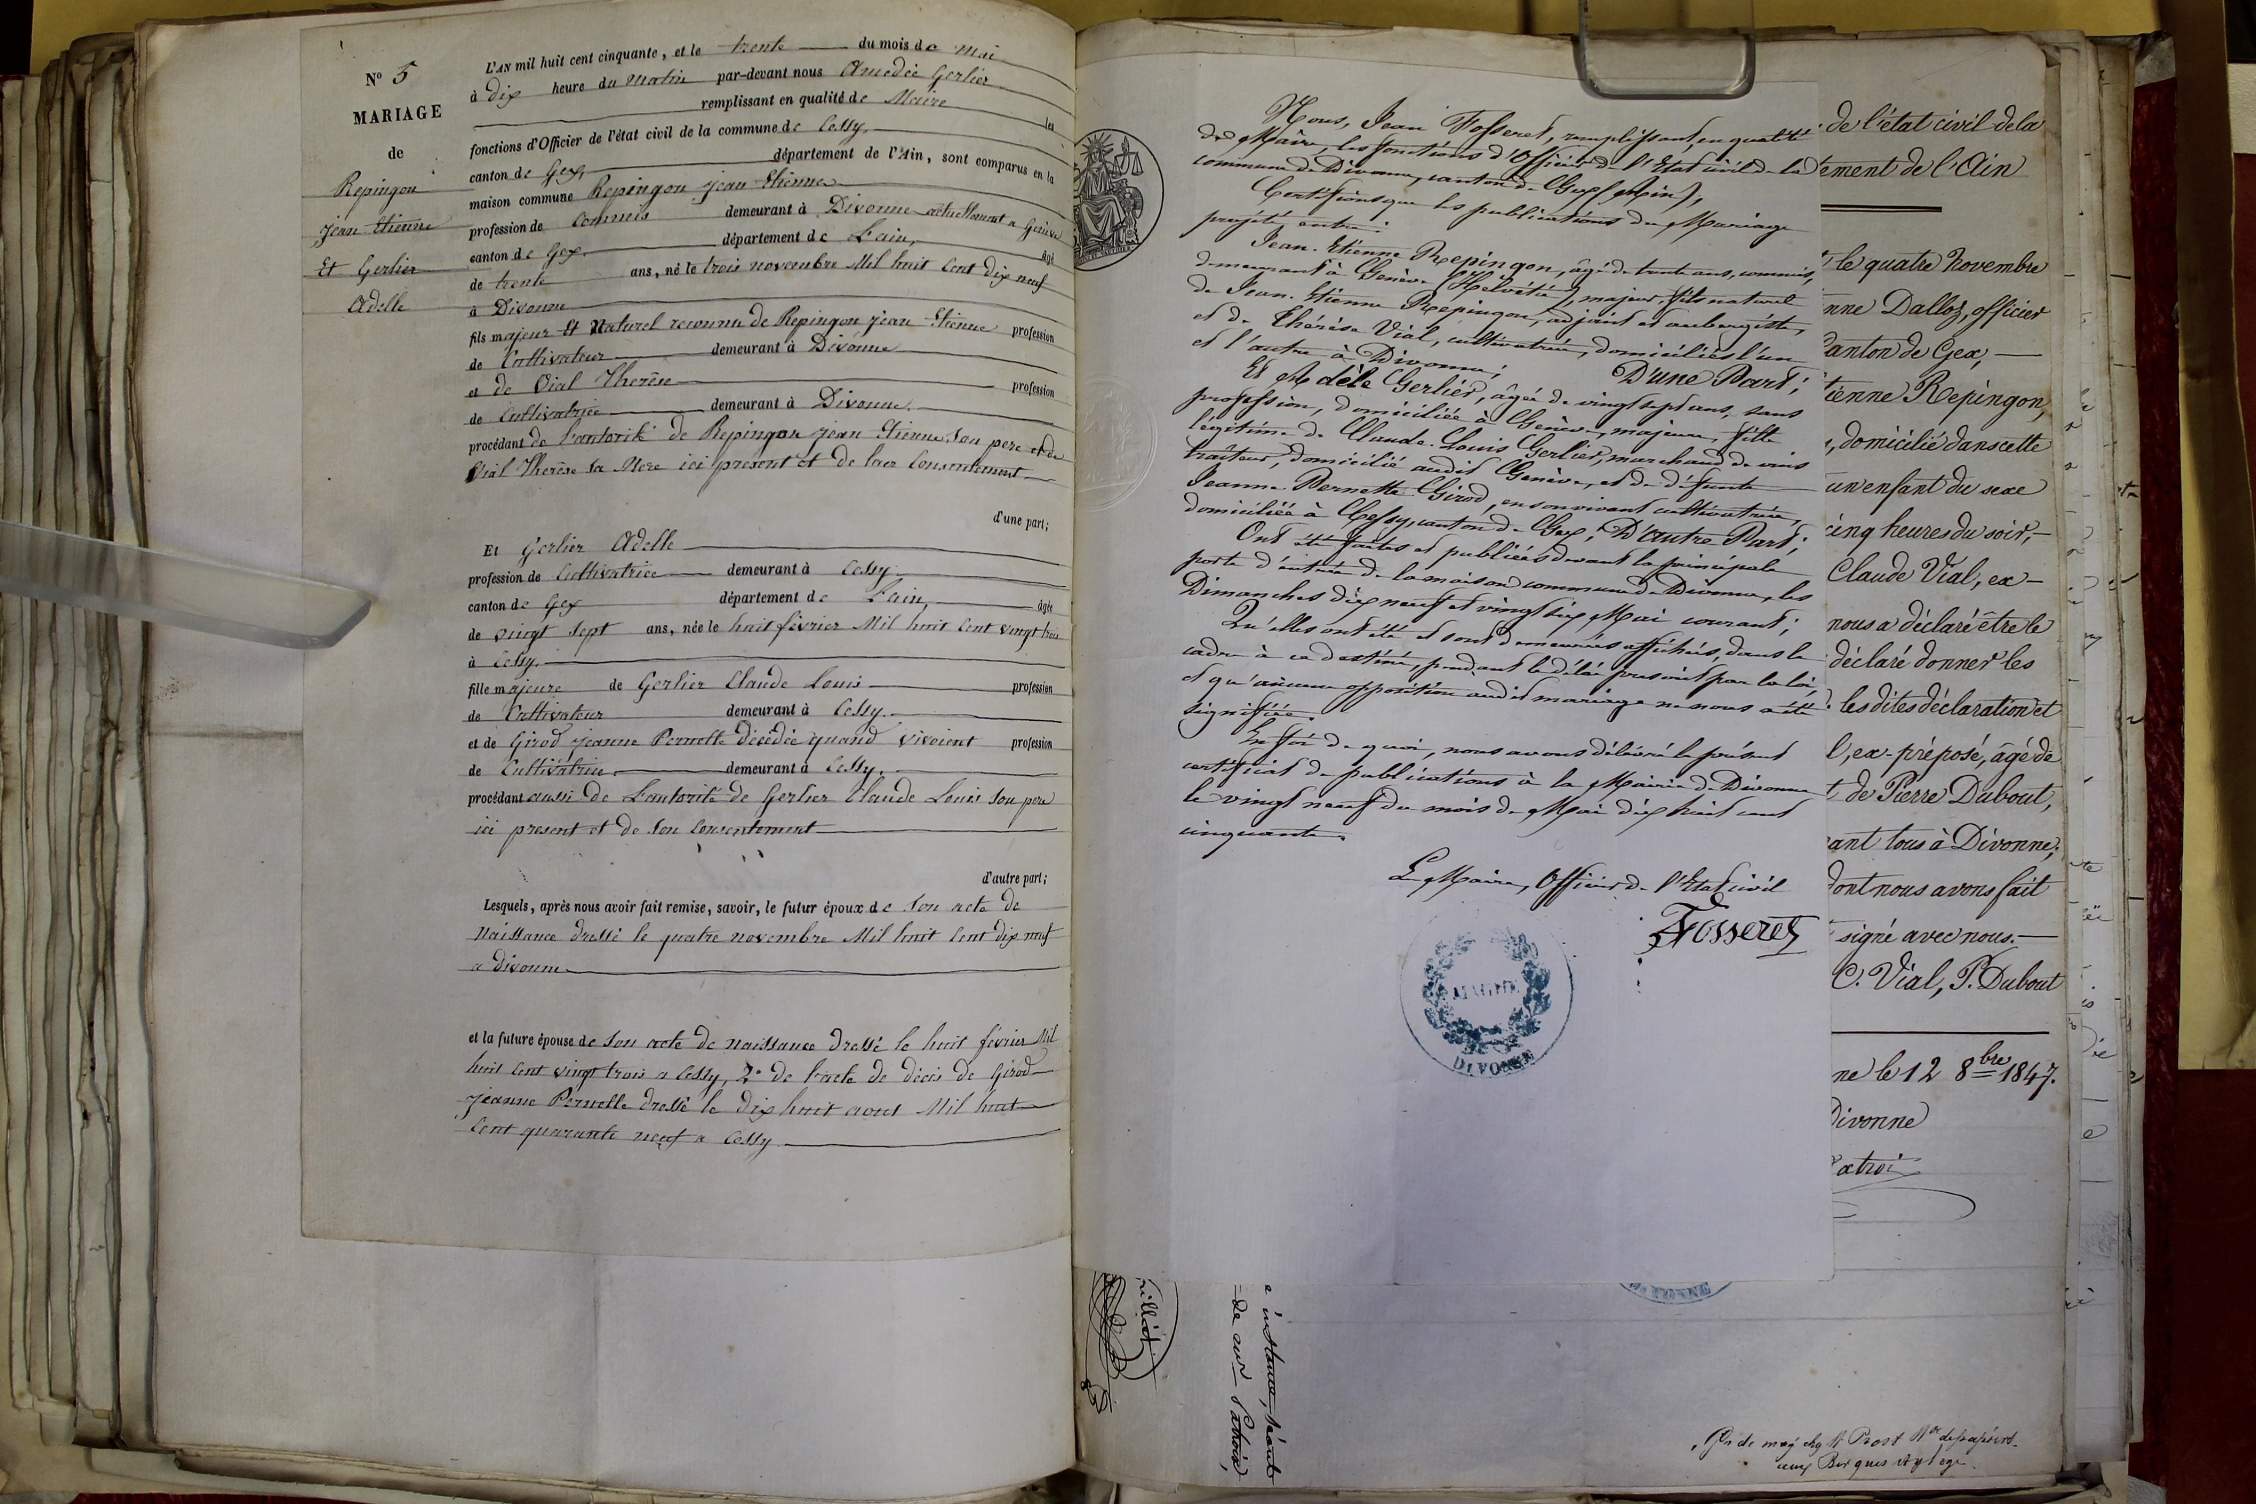 N° 5
MARIAGE
de
Repingon
jean Etienne
Et Gerlier
Adelle
L'AN mil huit cent cinquante, et le trente du mois de mai
à dix heure du matin par-devant nous Amedée Gerlier
remplissant en qualité de Maire les
fonctions d'Officier de l'état civil de la commune de Cessy,
canton de Gex, département de l'Ain, sont comparus en la
maison commune Repingon jean Etienne
profession de Commis demeurant à Divonne actuellement a Genève
canton de Gex département de L'ain, âgé
de trente ans, né le trois novembre Mil huit Cent dix neuf
à Divonne
fils majeur Et Naturel reconnu de Repingon jean Etienne profession
de Cultivateur demeurant à Divonne
et de Vial Therèse profession
de Cultivatrice demeurant à Divonne.
procédant de L'autorité de Repingon jean Etienne Son pere et de
Vial Therèse Sa Mere ici présent et de leur Consentement
d'une part;
Et Gerlier Adelle
profession de Cultivatrice demeurant à Cessy
canton de Gex département de L'ain, âgée
de vingt Sept ans, née le huit février Mil huit Cent vingt trois
à Cessy.
fille majeure de Gerlier Claude Louis profession
de Cultivateur demeurant à Cessy.
et de Girod jeanne Pernette décédée quand vivoient profession
de Cultivatrice demeurant à Cessy.
procédant aussi de L'autorité de Gerlier Claude Louis Son pere
ici present et de Son Consentement
d'autre part;
Lesquels, après nous avoir fait remise, savoir, le futur époux de Son acte de
Naissance dressé le quatre novembre Mil huit Cent dix neuf
a divonne
et la future épouse de Son acte de naissance dressé le huit février Mil
huit Cent vingt trois a Cessy, 2° de L'acte de décès de Girod
jeanne Pernette dressé le dix huit aout Mil huit
Cent quarante neuf a Cessy
Nous, Jean Fosseret, remplissant, en qualité
de Maire, les fonctions d'Officier de l'Etat civil de la
commune de Divonne, canton de Gex (Ain),
Certifions que les publications du Mariage
projeté entre:
Jean-Etienne Repingon, âgé de trente ans, commis,
demeurant à Genève (Helvétie), majeur, fils naturel
de Jean-Etienne Repingon, adjoint et aubergiste,
et de Thérèse Vial, cultivatrice, domiciliés l'un
et l'autre à Divonne; D'une Part;
Et Adèle Gerlier, âgée de vingt sept ans, sans
profession, domiciliée à Genève, majeure, fille
légitime de Claude-Louis Gerlier, marchand de vins
traiteur, domicilié audit Genève, et de défunte
Jeanne Pernette Girod, en son vivant cultivatrice,
domiciliée à Cessy, canton de Gex; D'autre Part;
Ont été faites et publiées devant la principale
porte d'entrée de la maison commune de Divonne, les
Dimanches dix neuf et vingt six Mai courant;
Qu'elles ont été et sont demeurées affichées, dans le
cadre à ce destiné, pendant le délai prescrit par la loi,
et qu'aucune opposition audit mariage ne nous a été
signifiée.
En foi de quoi, nous avons délivré le présent
certificat de publications à la Mairie de Divonne
le vingt neuf du mois de Mai dix huit cent
cinquante.
Le Maire, Officier de l'Etat civil
Fosseret
MAIRIE
DIVONNE
de l'état civil de la
tement de l'Ain
le quatre Novembre
nne Dalloz, officier
Canton de Gex,
tienne Repingon,
, domicilié dans cette
un enfant du sexe
cinq heures du soir,
Claude Vial, ex-
nous a déclaré être le
déclaré donner les
les dites déclaration et
l, ex-préposé, âgé de
t de Pierre Dubout,
ant tous à Divonne;
dont nous avons fait
signé avec nous.
C. Vial, P. Dubout
ne le 12 8bre 1847.
Divonne
DIVONNE
e instance, séant